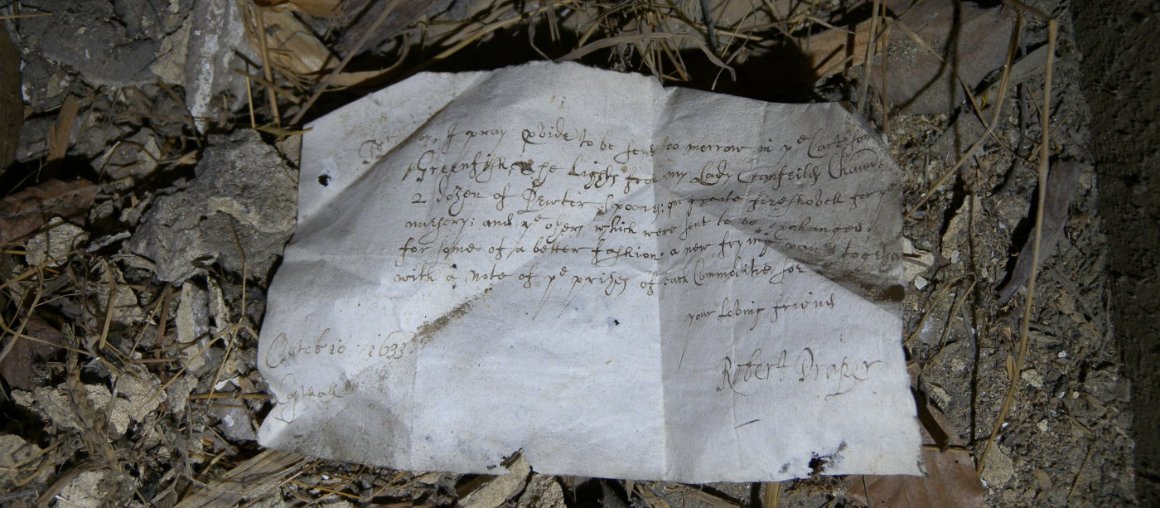 I pray p̱vide to be sent too morrow in yᵉ Cart some
Greenfish, The Lights from my Lady Cranfeilds Cham
2 dozen of Pewter spoons: greate fireshovell for yᵉ
nursery: and yᵉ others which were sent to be exchanged
for some of a better fashion, a new frying pann together
with a note of yᵉ prises of Commoditie for
your loving friend
Robert Draper
Octobris 1633